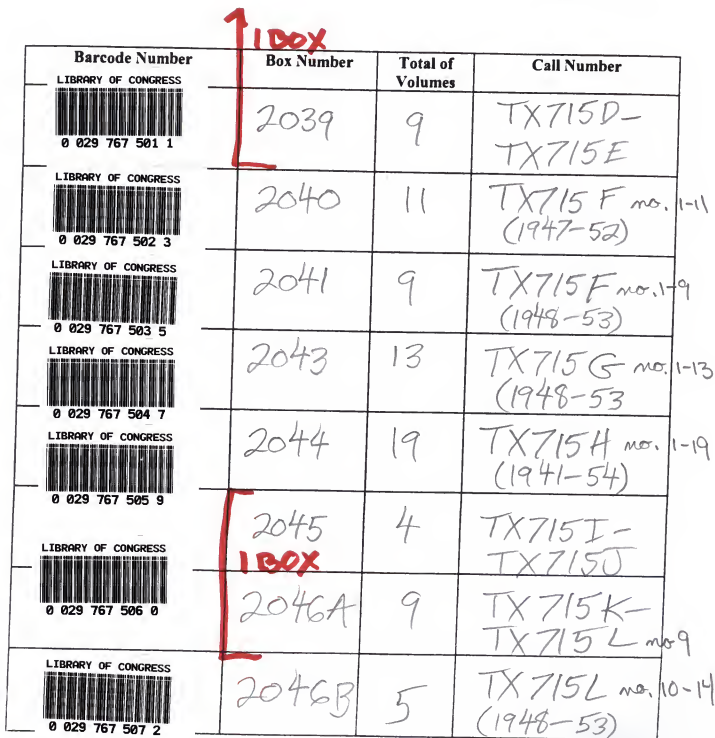 1 BOX
Barcode Number Box Number Total of Volumes Call Number
LIBRARY OF CONGRESS
0 029 767 501 1
2039 9 TX715D-
TX715E
LIBRARY OF CONGRESS
0 029 767 502 3
2040 11 TX715 F no. 1-11
(1947-52)
LIBRARY OF CONGRESS
0 029 767 503 5
2041 9 TX715F no. 1-9
(1948-53)
LIBRARY OF CONGRESS
0 029 767 504 7
2043 13 TX715 G no. 1-13
(1948-53
LIBRARY OF CONGRESS
0 029 767 505 9
2044 19 TX715H no. 1-19
(1941-54)
LIBRARY OF CONGRESS
0 029 767 506 0
2045 4 TX715I-
TX715J
1 BOX
2046A 9 TX715K-
TX715L no 9
LIBRARY OF CONGRESS
0 029 767 507 2
2046B 5 TX715L no. 10-14
(1948-53)